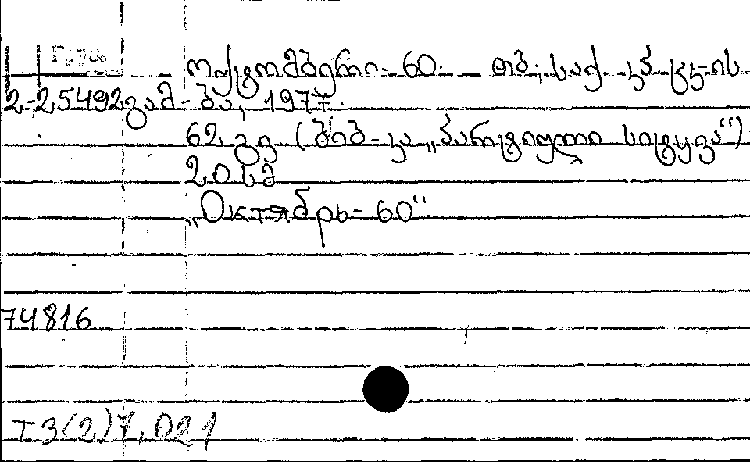 ოქტომბერი-60. თბ., საქ. კპ ცკ-ის
2-25492 გამ-ბა, 1977.
62 გვ. (ბიბ-კა „პარტიული სიტყვა“)
20 სმ
„Октябрь-60“
74816
I3(2)7,021